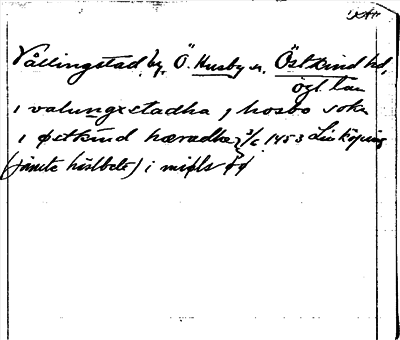 Vållingstad, by, Ö. Husby sn, Östkind hd,
ögl. län
i valungxstadha j hosbo sokn
i østkind hæradhe 3/6 1453 Linköping
(jämte höstbete) i